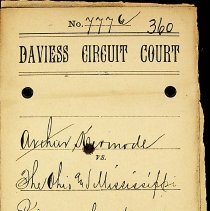 No. 7776 360
DAVIESS CIRCUIT COURT
Archar Kermode
vs.
The Ohio and Mississippi